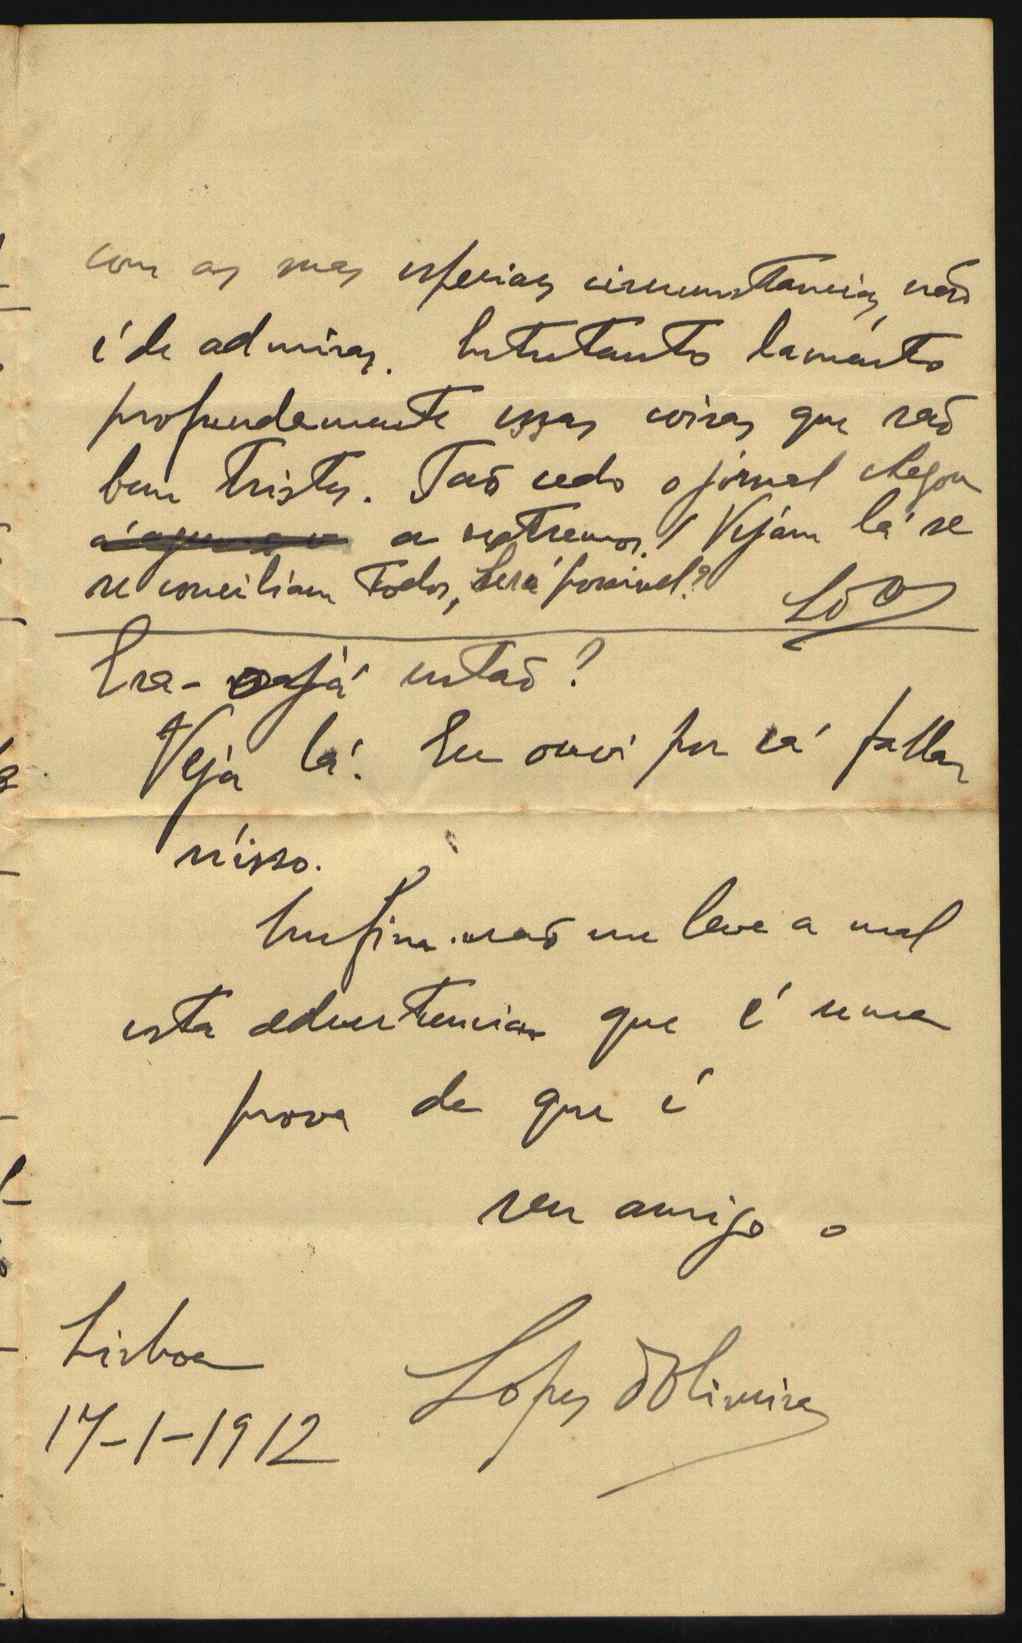 com as suas especiaes circumstancias, não
é de admirar. Entretanto lamento
profundamente essas coisas que são
bem tristes. Tão cedo o jornal chegou
a extremos! Vejam lá se
se conciliam todos, será possivel?
Lo
Era - já estão?
Veja lá. Eu ouvi por cá fallar
n'isso.
Emfim não me leve a mal
esta advertencia que é uma
prova de que é
seu amigo o
Lisboa Lopes d'Oliveira
17-1-1912